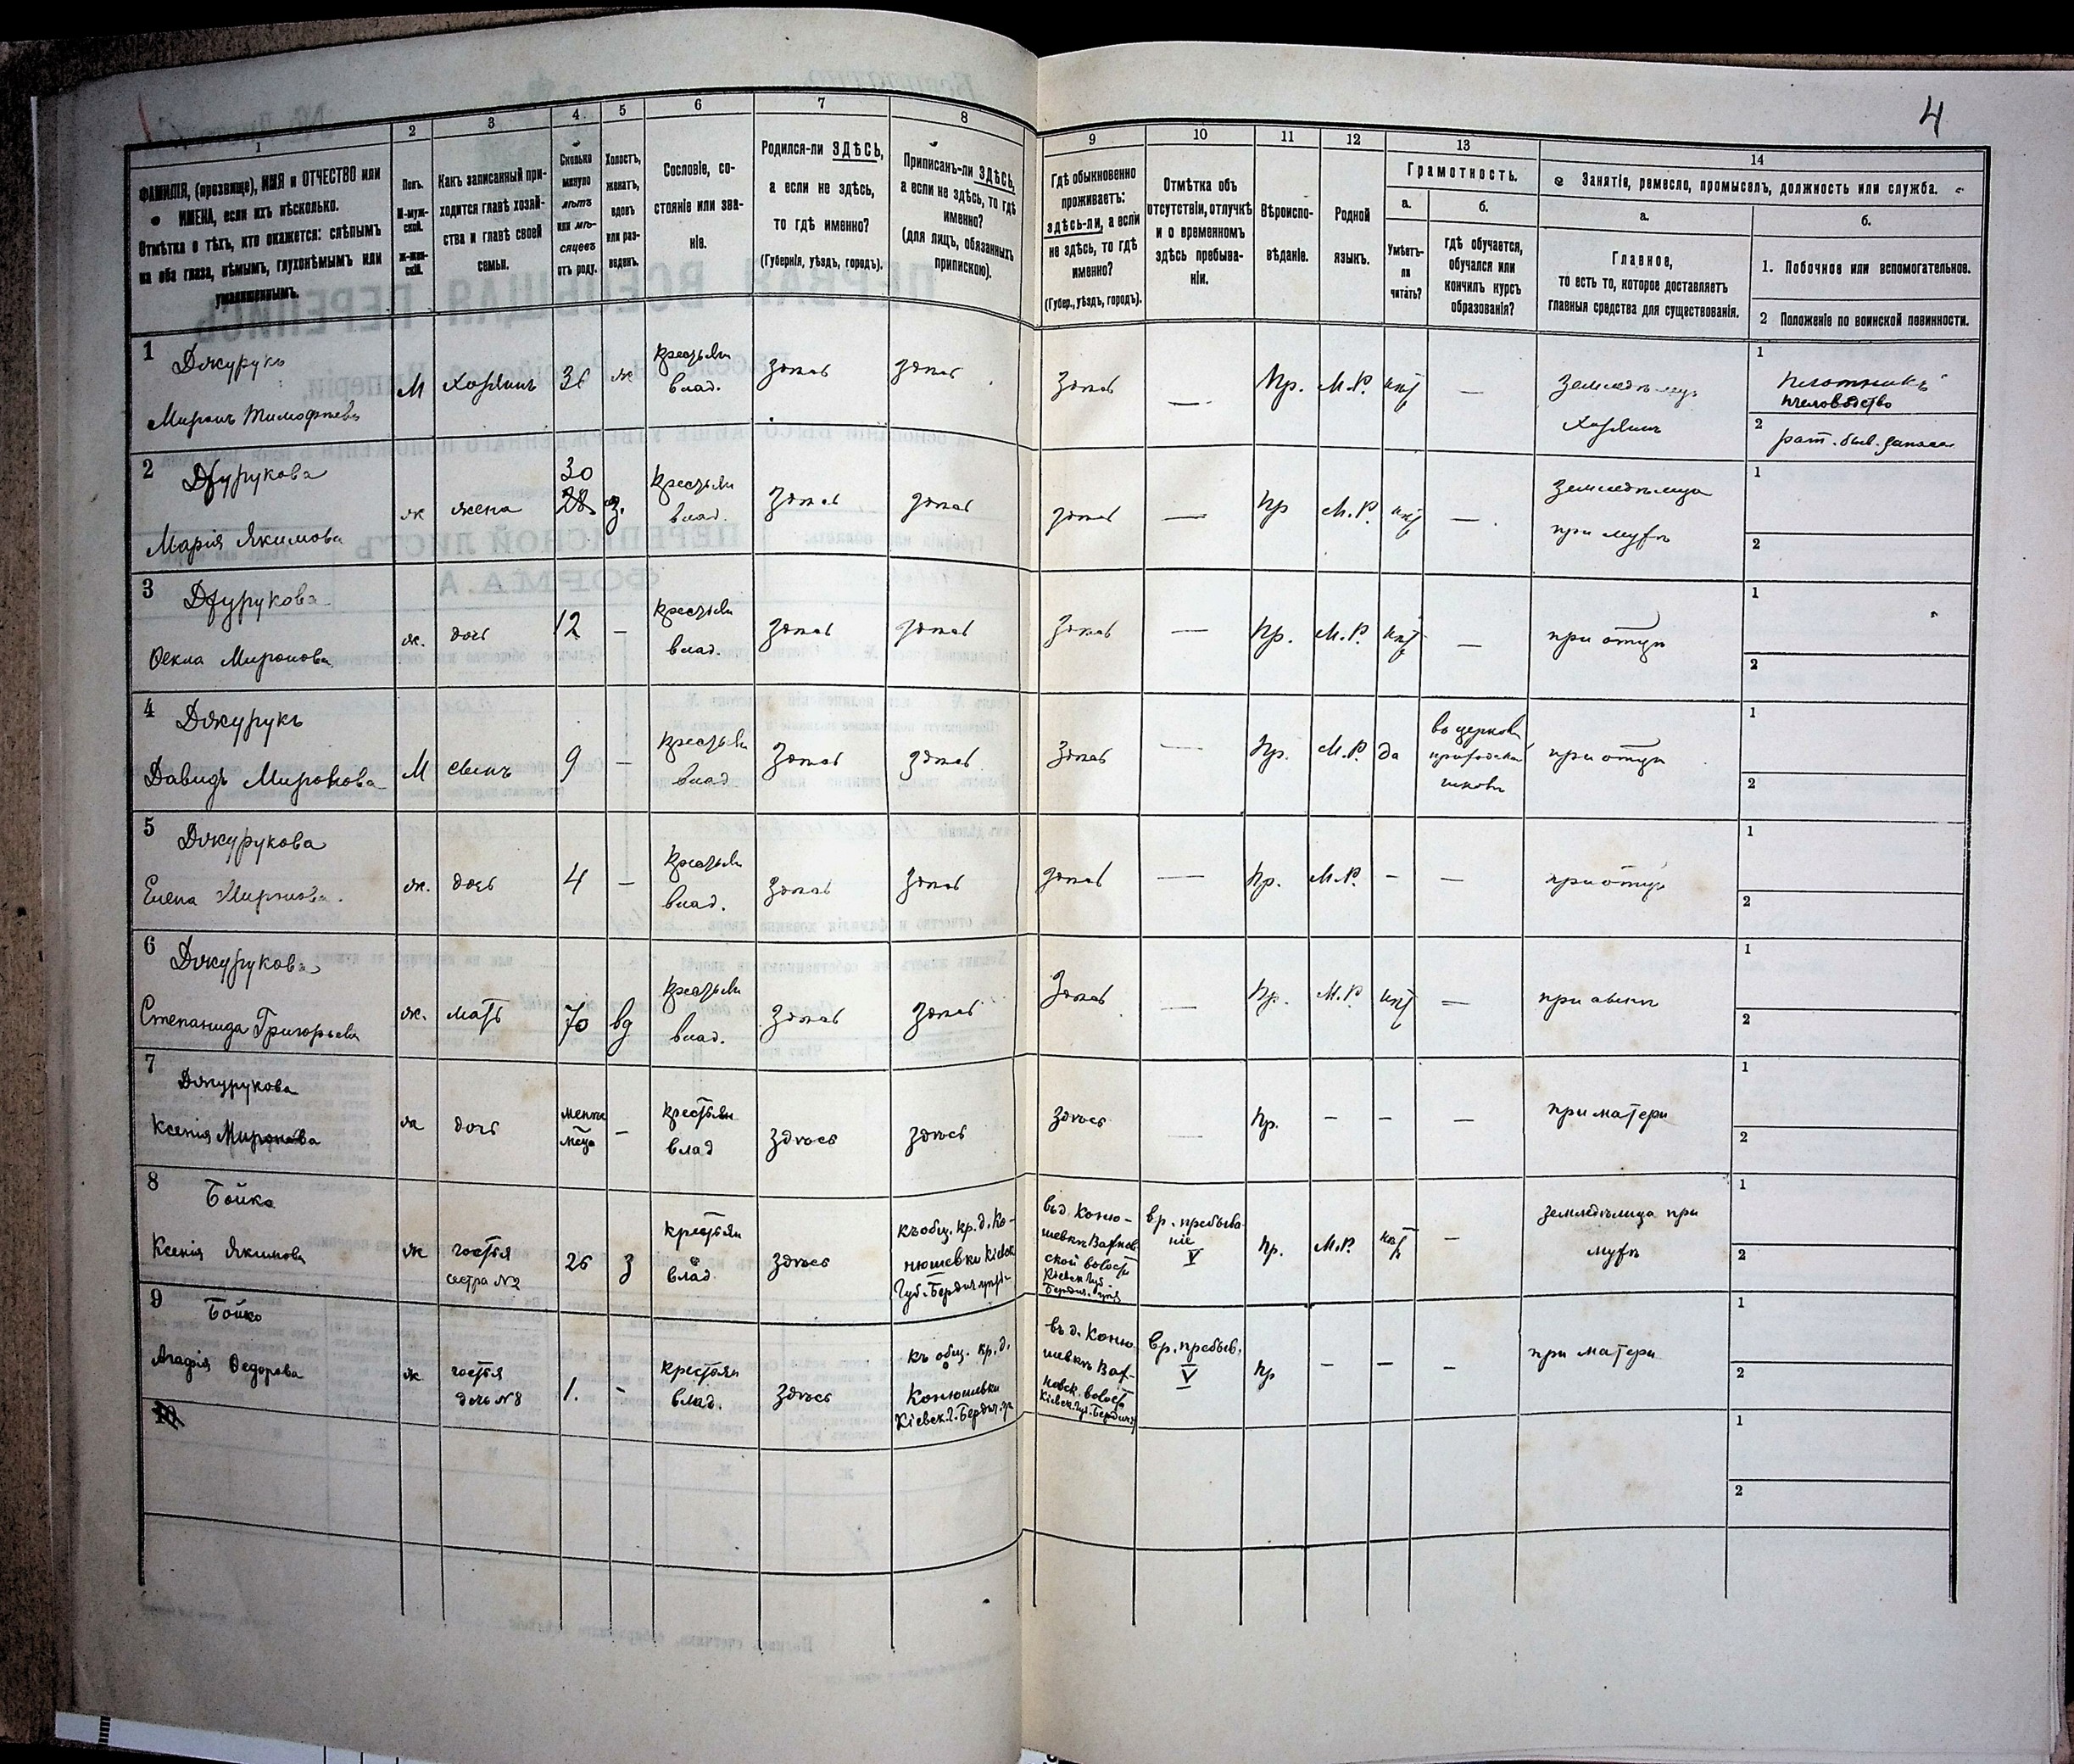 4
1
2
3
4
5
6
7
8
9
10
11
12
13
14
ФАМИЛІЯ, (прозвище), ИМЯ и ОТЧЕСТВО или
ИМЕНА, если ихъ нѣсколько.
Отмѣтка о тѣхъ, кто окажется: слѣпымъ
на оба глаза, нѣмымъ, глухонѣмымъ или
умалишеннымъ.
Полъ.
М-муж-
ской.
ж-жен-
скій.
Какъ записанный при-
ходится главѣ хозяй-
ства и главѣ своей
семьи.
Сколько
минуло
лѣтъ
или мѣ-
сяцевъ
отъ роду.
Холостъ,
женатъ,
вдовъ
или раз-
веденъ.
Сословіе, со-
стояніе или зва-
ніе.
Родился-ли ЗДѢСЬ,
а если не здѣсь,
то гдѣ именно?
(Губернія, уѣздъ, городъ).
Приписанъ-ли ЗДѢСЬ,
а если не здѣсь, то гдѣ
именно?
(для лицъ, обязанныхъ
припискою).
Гдѣ обыкновенно
проживаетъ:
здѣсь-ли, а если
не здѣсь, то гдѣ
именно?
(Губер., уѣздъ, городъ).
Отмѣтка объ
отсутствіи, отлучкѣ
и о временномъ
здѣсь пребыва-
ніи.
Вѣроиспо-
вѣданіе.
Родной
языкъ.
Грамотность.
а.
Умѣетъ-
ли
читать?
б.
гдѣ обучается,
обучался или
кончилъ курсъ
образованія?
Занятіе, ремесло, промыселъ, должность или служба.
а.
Главное,
то есть то, которое доставляетъ
главныя средства для существованія.
б.
1. Побочное или вспомогательное.
2 Положеніе по воинской повинности.
1 Джурукъ
Миронъ Тимофѣевъ
М хозяинъ 36 ж
крестьян
влад.
здѣсь здѣсь здѣсь — Пр. М.Р. нѣт —
земледѣлецъ
хозяинъ
1 плотникъ
пчеловодство
2 рат. был. запаса
2 Джурукова
Марія Якимова
ж жена
30
28 з.
крестьян
влад.
здѣсь здѣсь здѣсь — Пр М.Р. нѣт —
земледѣлица
при мужѣ
1
2
3 Джурукова
Ѳекла Миронова
ж. дочь 12 —
крестьян
влад.
здѣсь здѣсь здѣсь — Пр. М.Р. нѣт —
при отцѣ
1
2
4 Джурукъ
Давидъ Миронова
М сынъ 9 —
крестьян
влад
здѣсь здѣсь здѣсь — Пр. М.Р. да
въ церковн
приходской
школѣ
при отцѣ
1
2
5 Джурукова
Елена Миронова.
ж. дочь 4 —
крестьян
влад.
здѣсь здѣсь здѣсь — Пр. М.Р. — —
при отцѣ
1
2
6 Джурукова
Степанида Григорьева
ж. мать 70 вд
крестьян
влад.
здѣсь здѣсь здѣсь — Пр. М.Р. нѣт —
при сынѣ
1
2
7 Джурукова
Ксенія Миронова
ж дочь
менше
мѣця —
крестьян
влад
здѣсь здѣсь здѣсь — Пр. — — —
при матери
1
2
8 Бойко
Ксенія Якимова
ж гостья
сестра №2
26 з
крестьян
влад
здѣсь
къ общ. кр. д. Ко-
нюшевки Кіевск
Губ. Бердич. уѣзд
въ д. Коню-
шевкѣ Вахнов
ской волост
Кіевск. Губ.
Бердич. уѣзд
вр. пребыва
ніе
V
Пр. М.Р. нѣт —
земледѣлица при
мужѣ
1
2
9 Бойко
Агафія Ѳедорова
ж гостья
дочь №8
1. —
крестьян
влад.
здѣсь
къ общ. кр. д.
Конюшевки
Кіевск. Г. Бердич. уѣз
въ д. Коню
шевкѣ Вах-
новск. волост
Кіевск. Губ. Бердич. у
Вр. пребыв.
V
Пр — — —
при матери
1
2
10
1
2